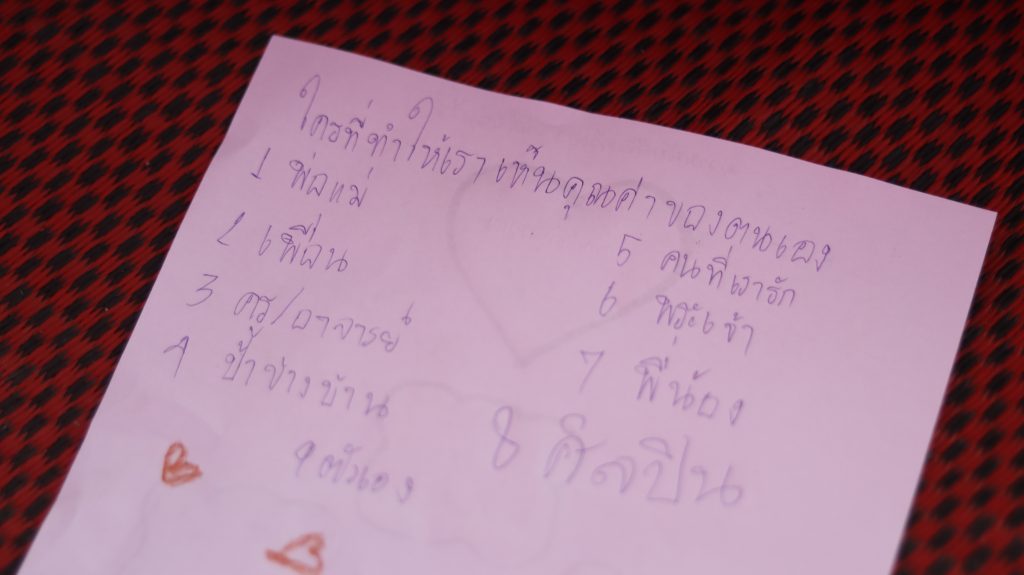 ใครที่ทำให้เราเห็นคุณค่าของตนเอง
1 พ่อแม่
2 เพื่อน
3 ครู/อาจารย์
4 ป้าข้างบ้าน
5 คนที่เรารัก
6 พระเจ้า
7 พี่น้อง
8 ศิลปิน
9 ตัวเอง